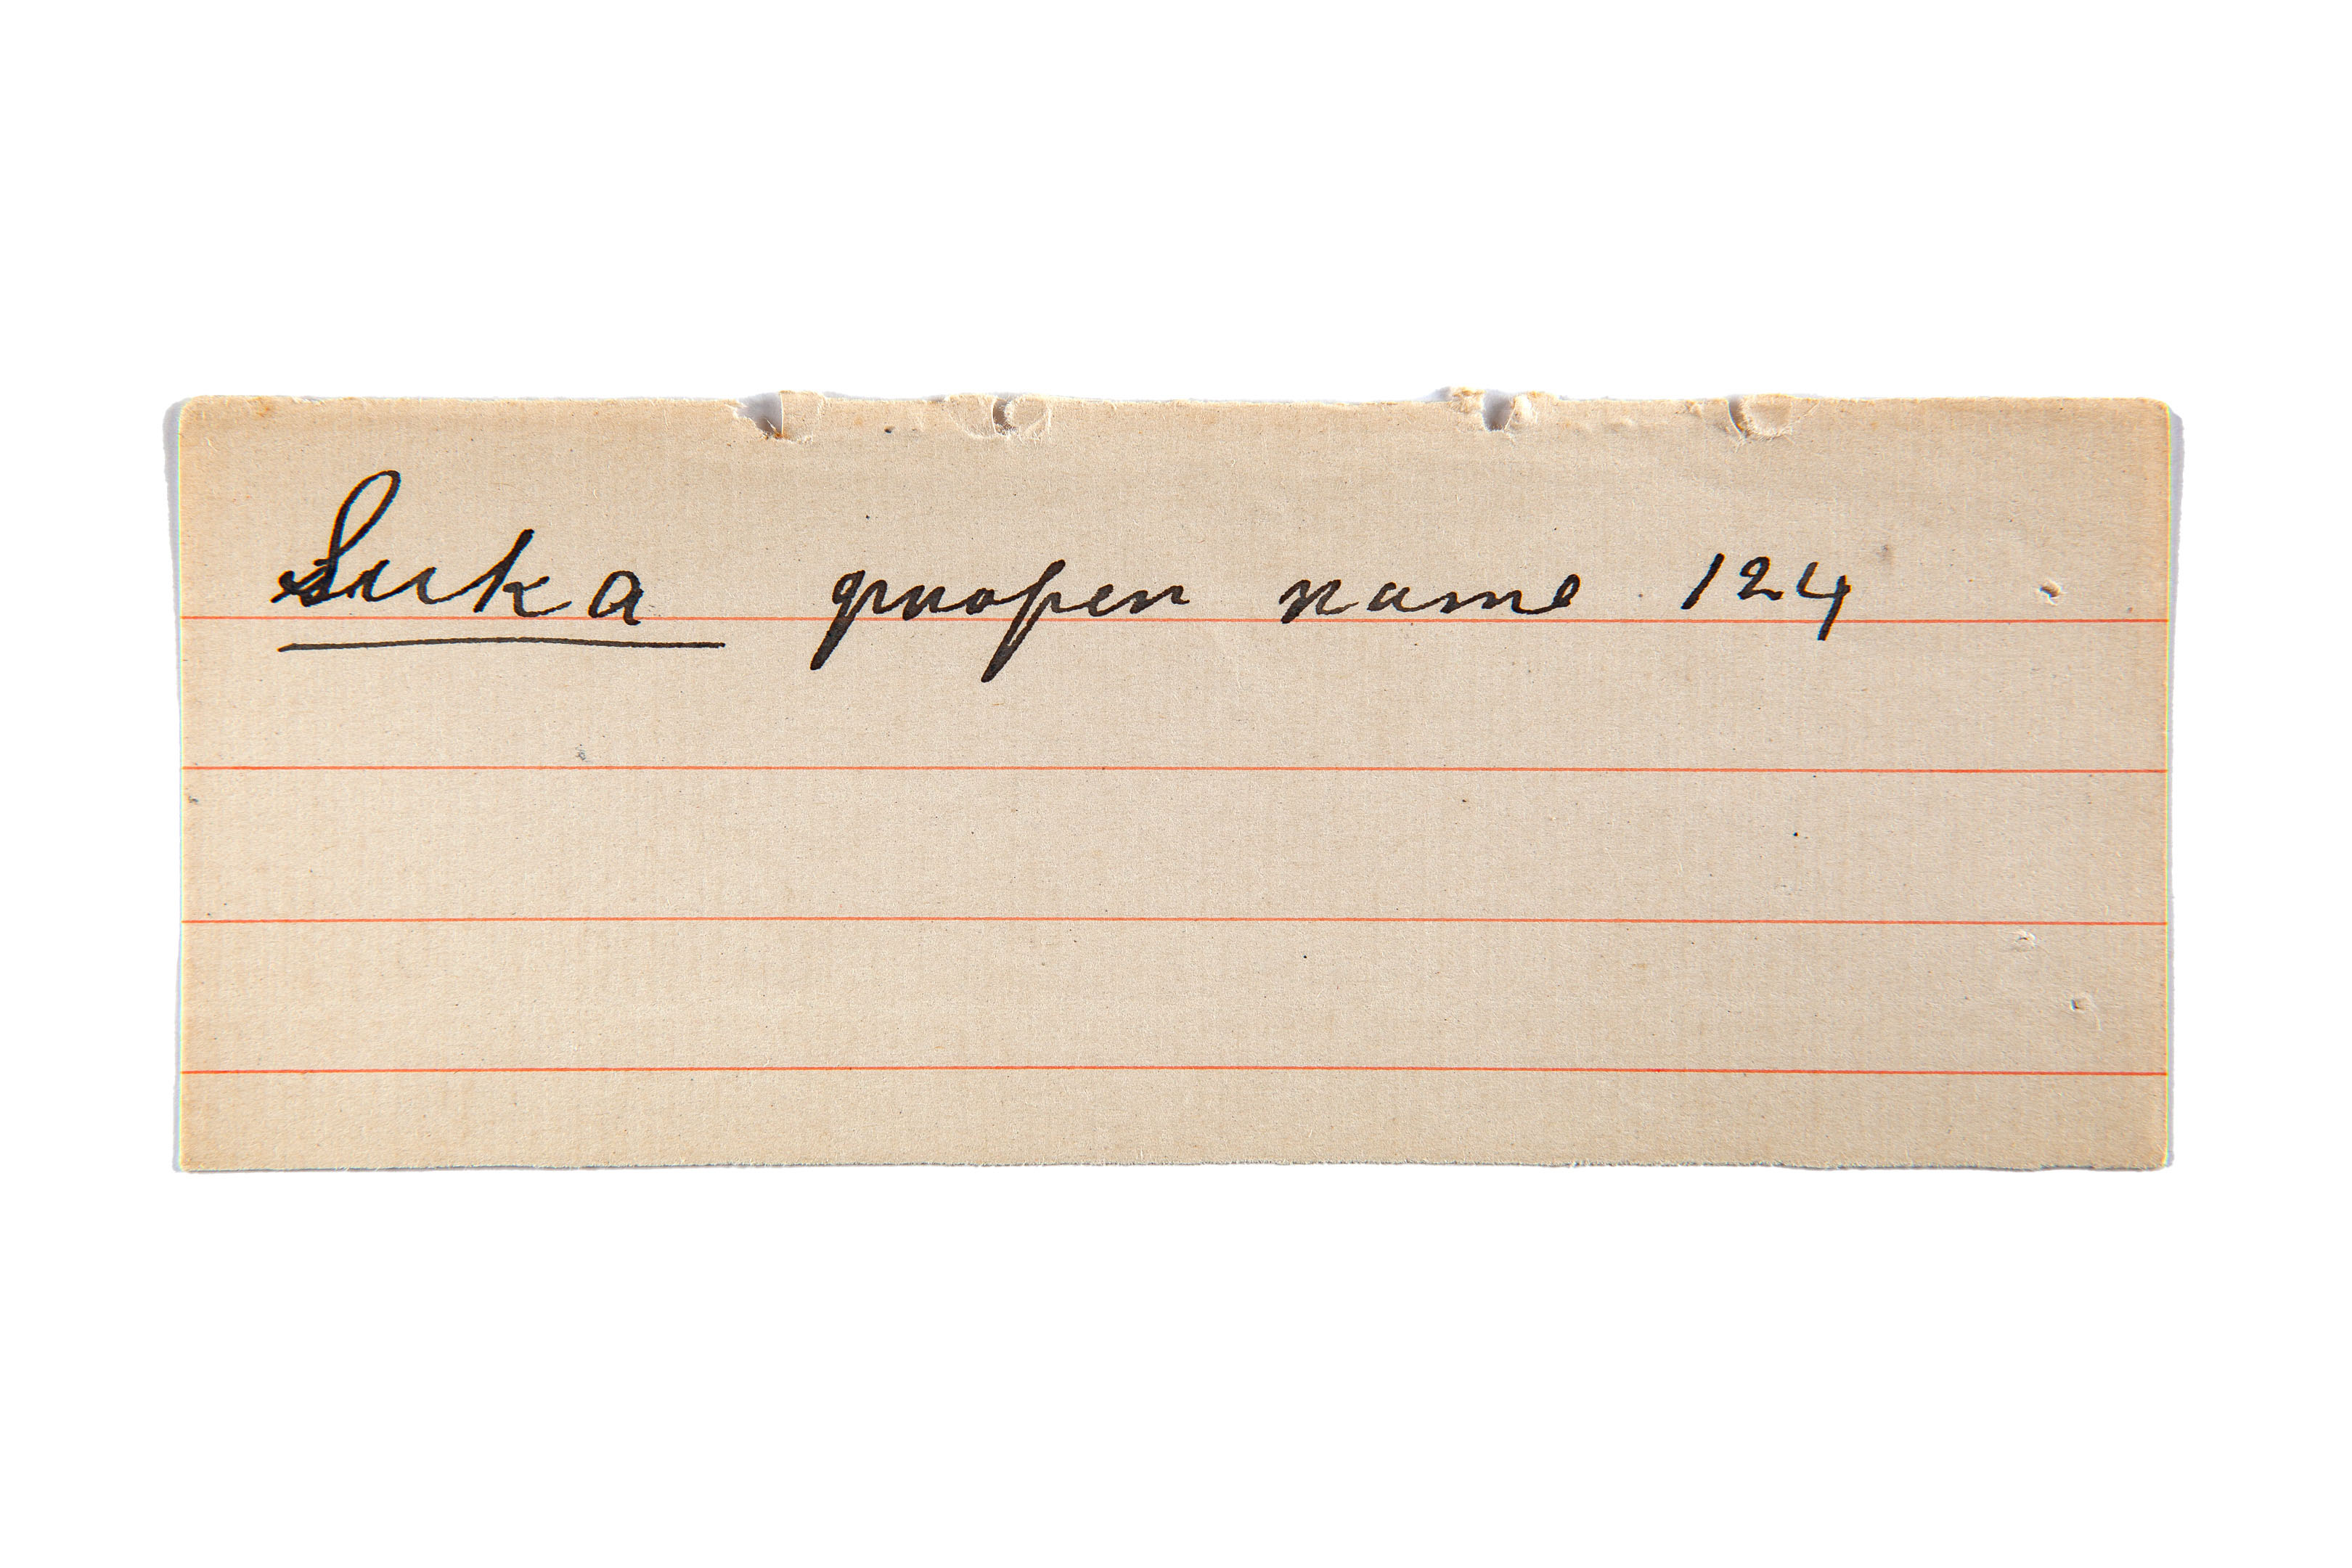 Suka proper name 124